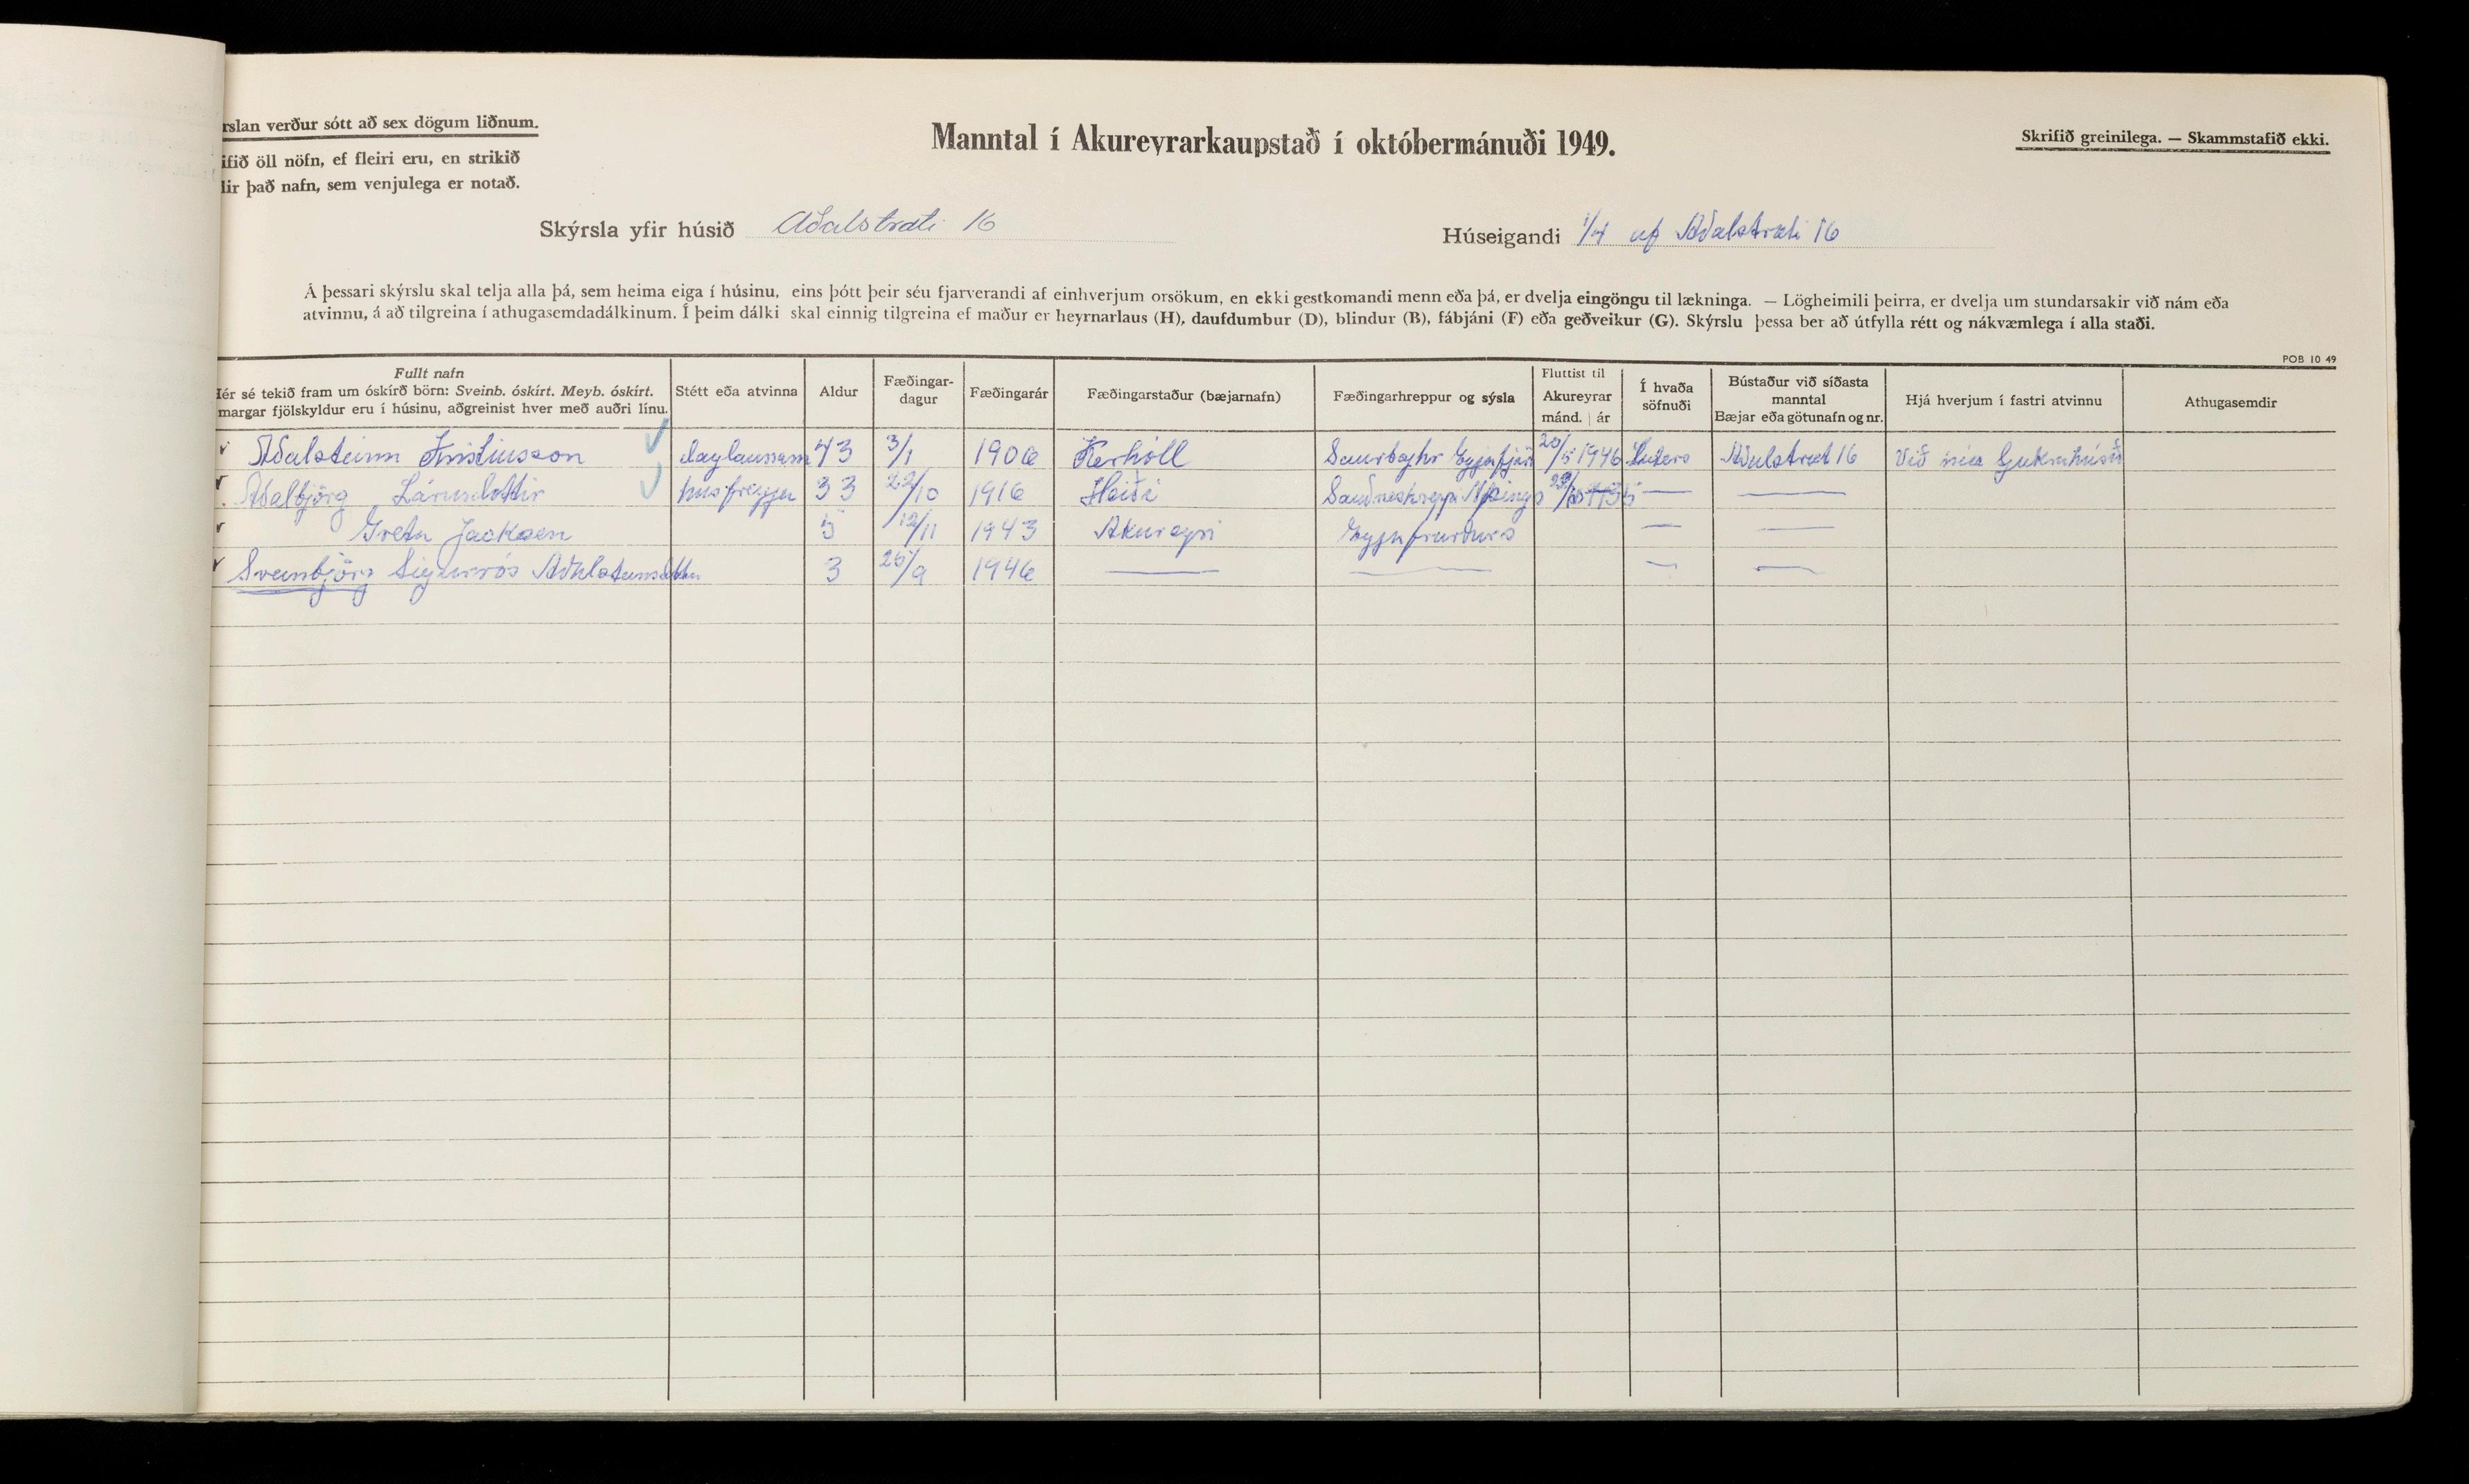 rslan verður sótt að sex dögum liðnum.
ifið öll nöfn, ef fleiri eru, en strikið
lir það nafn, sem venjulega er notað.
Manntal í Akureyrarkaupstað í októbermánuði 1949.
Skrifið greinilega. — Skammstafið ekki.
Skýrsla yfir húsið Aðalstræti 16
Húseigandi 1/4 af Aðalstræti 16
Á þessari skýrslu skal telja alla þá, sem heima eiga í húsinu, eins þótt þeir séu fjarverandi af einhverjum orsökum, en ekki gestkomandi menn eða þá, er dvelja eingöngu til lækninga. — Lögheimili þeirra, er dvelja um stundarsakir við nám eða
atvinnu, á að tilgreina í athugasemdadálkinum. Í þeim dálki skal einnig tilgreina ef maður er heyrnarlaus (H), daufdumbur (D), blindur (B), fábjáni (F) eða geðveikur (G). Skýrslu þessa ber að útfylla rétt og nákvæmlega í alla staði.
POB 10 49
Fullt nafn
Hér sé tekið fram um óskírð börn: Sveinb. óskírt. Meyb. óskírt.
margar fjölskyldur eru í húsinu, aðgreinist hver með auðri línu.
Stétt eða atvinna
Aldur
Fæðingar-
dagur
Fæðingarár
Fæðingarstaður (bæjarnafn)
Fæðingarhreppur og sýsla
Fluttist til
Akureyrar
mánd. | ár
Í hvaða
söfnuði
Bústaður við síðasta
manntal
Bæjar eða götunafn og nr.
Hjá hverjum í fastri atvinnu
Athugasemdir
Aðalsteinn Kristinsson 43 3/1 1906 Kerhóll 20/5 1946 Luters Aðalstræt 16 Við
Aðalbjörg Lárusdóttir húsfreyja 33 22/10 1916 Heiði — —
Greta Jacksen 5 12/11 1943 Akureyri — —
Sveinbjörg Sigurrós Aðalsteinsdóttir 3 25/9 1946 — — — —